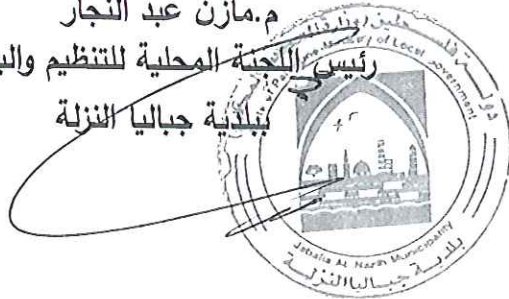 م.مازن عبد النجار
رئيس اللجنة المحلية للتنظيم
ببلدية جباليا النزلة
دولة فلسطين
Ministry of Local Government
Jabalia AL Nazla Municipality
بلدية جباليا النزلة